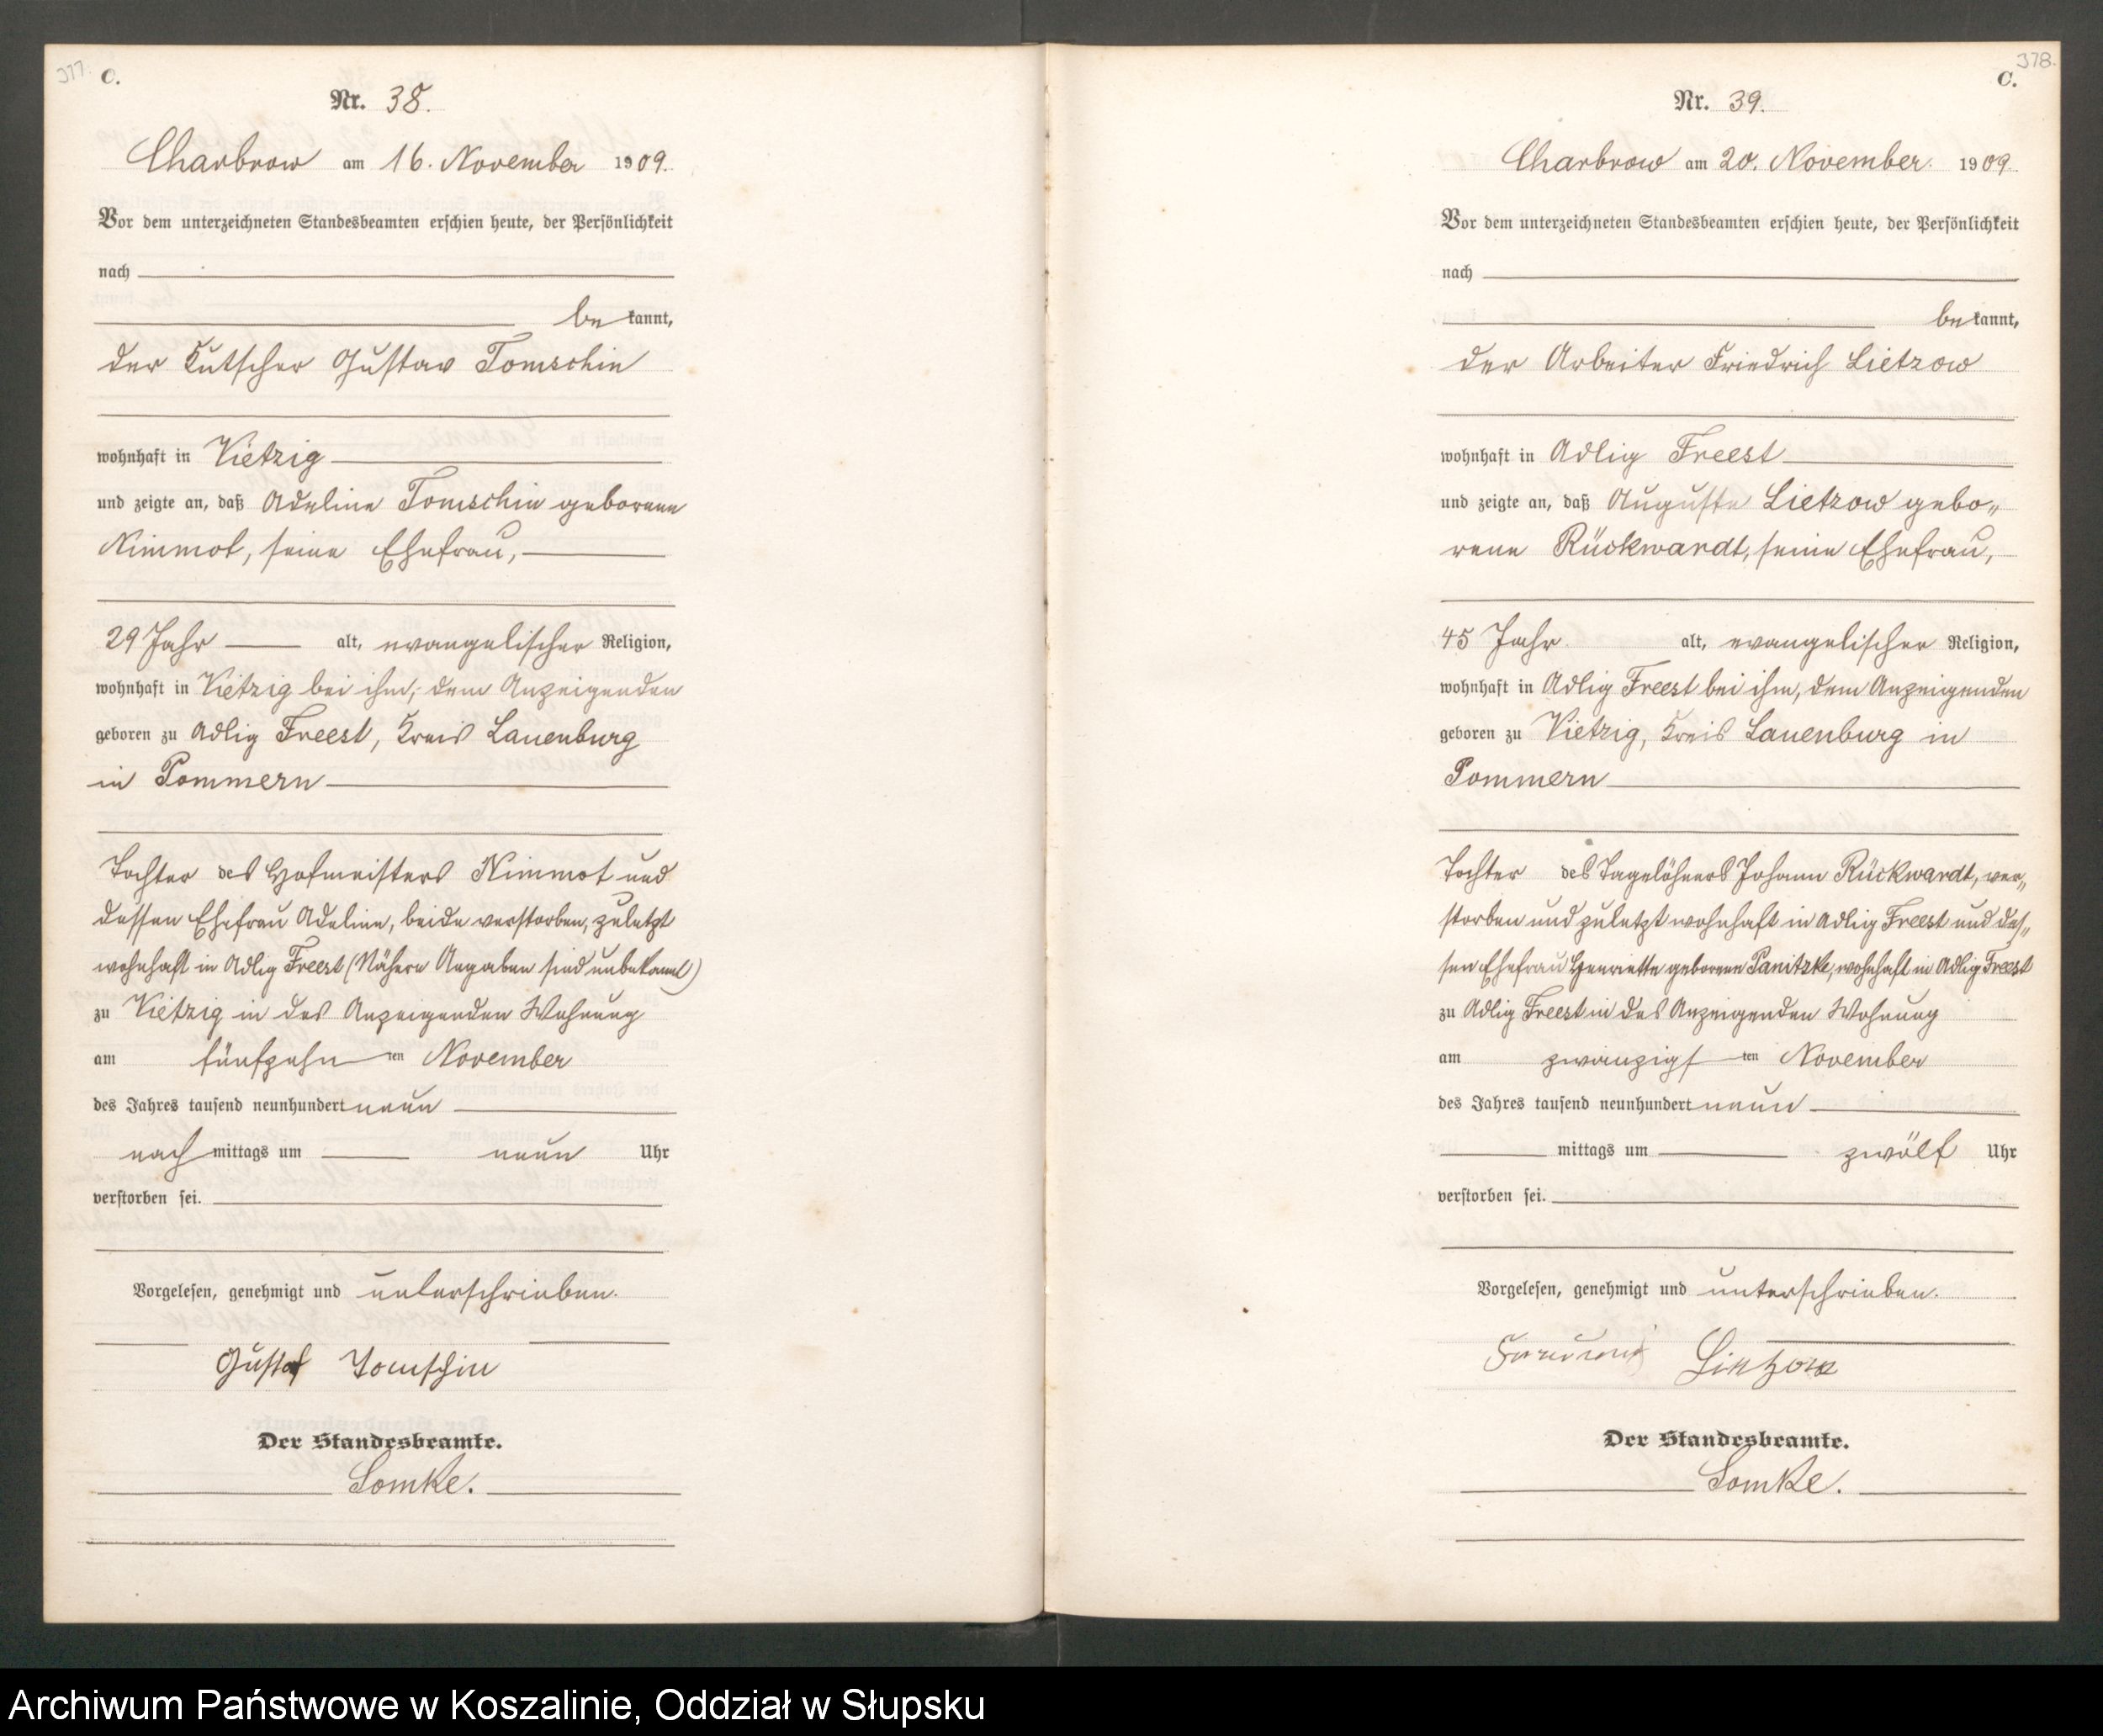 377.
C.
Nr. 38.
Charbrow am 16. November 1909.
Vor dem unterzeichneten Standesbeamten erschien heute, der Persönlichkeit
nach
be kannt,
der Kutscher Gustav Tomschin
wohnhaft in Vietzig
und zeigte an, daß Adeline Tomschin geborene
Nimmot, seine Ehefrau,
29 Jahr alt, evangelischer Religion,
wohnhaft in Vietzig bei ihm, dem Anzeigenden
geboren zu Adlig Freest, Kreis Lauenburg
in Pommern
Tochter des Hofmeisters Nimmot und
dessen Ehefrau Adeline, beide verstorben, zuletzt
wohnhaft in Adlig Freest (Nähere Angaben sind unbekannt)
zu Vietzig in des Anzeigenden Wohnung
am fünfzehn ten November
des Jahres tausend neunhundert neun
nach mittags um neun Uhr
verstorben sei.
Vorgelesen, genehmigt und unterschrieben.
Gustaf Tomschin
Der Standesbeamte.
Lomke.
378.
C.
Nr. 39.
Charbrow am 20. November. 1909
Vor dem unterzeichneten Standesbeamten erschien heute, der Persönlichkeit
nach
be kannt,
der Arbeiter Friedrich Lietzow
wohnhaft in Adlig Freest
und zeigte an, daß Auguste Lietzow gebo„
rene Rückwardt, seine Ehefrau,
45 Jahr alt, evangelischer Religion,
wohnhaft in Adlig Freest bei ihm, dem Anzeigenden
geboren zu Vietzig, Kreis Lauenburg in
Pommern
Tochter des Tagelöhners Johann Rückwardt, ver„
storben und zuletzt wohnhaft in Adlig Freest und des„
sen Ehefrau Henriette geborene Panitzke, wohnhaft in Adlig Freest
zu Adlig Freest in des Anzeigenden Wohnung
am zwanzigs ten November
des Jahres tausend neunhundert neun
mittags um zwölf Uhr
verstorben sei.
Vorgelesen, genehmigt und unterschrieben.
Lietzow
Der Standesbeamte.
Lomke.
Archiwum Państwowe w Koszalinie, Oddział w Słupsku